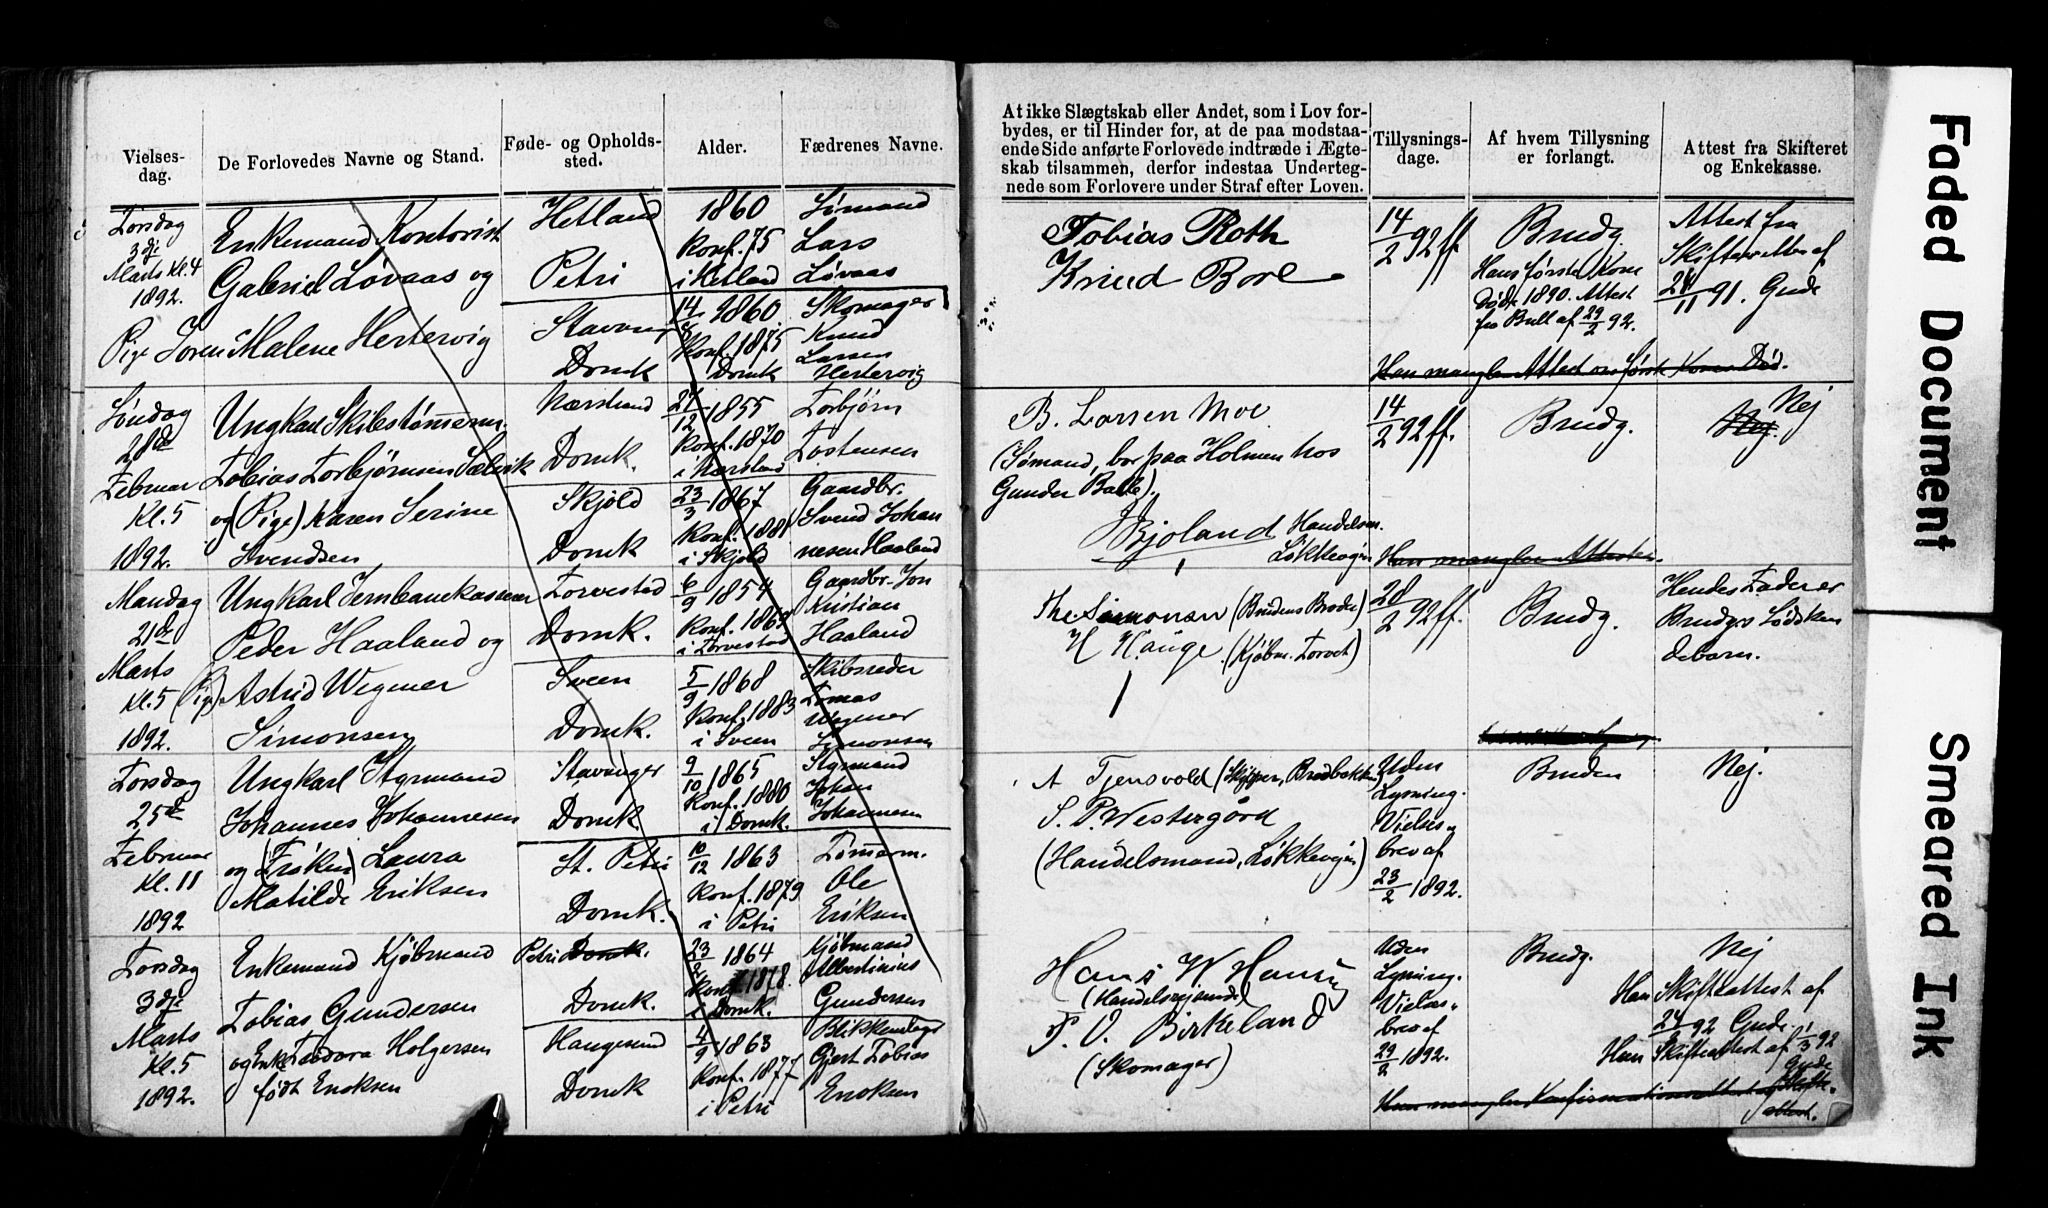 Vielses-
dag.
De Forlovedes Navne og Stand.
Føde- og Opholds-
sted.
Alder.
Fædrenes Navne.
Torsdag
3dj
Marts Kl. 4
1892.
Enkemand Kontorist
Gabriel Løvaas og
Pige Soren Malene Hertervig
Hetland
Petri
Stavang
Domk
1860
Konf. 75
i Hetland
14/8 1860
Konf. 1875
Domk
Sømand
Lars
Løvaas
Skomager
Knud
Larsen
Hertervig
Søndag
28de
Februar
Kl. 5
1892.
Ungkarl Skibstømmerm.
Tobias Torbjørnsen Sælvik
og (Pige) Karen Serine
Svendsen
Nærstrand
Domk.
Skjold
Domk
27/12 1855
Konf. 1870
i Nærstrand
23/3 1867
Konf. 1881
i Skjold
Torbjørn
Tostensen
Gaardbr.
Svend Johan
nesen Haaland
Mandag
21de
Marts
Kl. 5
1892.
Ungkarl Jernbanekasserer
Peder Haaland og
(Pige) Astrid Wegner
Simonsen
Torvestad
Domk.
Sveen
Domk.
6/9 1854
Konf. 1869
i Torvestad
5/9 1868
Konf. 1883
i Sveen
Gaardbr. Jon
Kristian
Haaland
Skibsreder
Tomas
Wegner
Simonsen
Torsdag
25de
Februar
Kl. 11
1892
Ungkarl Styrmand
Johannes Johannesen
og (Frøken) Laura
Matilde Eriksen
Stavanger
Domk.
St. Petri
Domk.
9/10 1865
Konf. 1880
i Domk.
10/12 1863
Konf. 1879
i Petri
Styrmand
Johan
Johannesen
Tømmerm.
Ole
Eriksen
Torsdag
3dje
Marts
Kl. 5
1892.
Enkemand Kjøbmand
Tobias Gundersen
og Enke Teodora Holgersen
født Enoksen
Petri Domk.
Domk.
Haugesund
Domk
23/2 1864
Konf. 1878.
i Domk.
4/9 1863
Konf. 1877
i Petri
Kjøbmand
Albertinius
Gundersen
Blikkenslager
Gjert Tobias
Enoksen
At ikke Slægtskab eller Andet, som i Lov for-
bydes, er til Hinder for, at de paa modstaa-
ende Side anførte Forlovede indtræde i Ægte-
skab tilsammen, derfor indestaa Underteg-
nede som Forlovere under Straf efter Loven.
Tillysnings-
dage.
Af hvem Tillysning
er forlangt.
Attest fra Skifteret
og Enkekasse.
Tobias Roth
Knud Bore
14/2 92 ff
Brudg.
Hans første Kone
døde 1890. Attest
fra Bull af 29/2 92.
Attest fra
Skifteretten af
24/11 91. Gude
Han mangler Attest om første Kones Død.
B. Larsen Moe
(Sømand, bor paa Holmen hos
Gunder Balle).
Bjoland Handelsm.
Løkkevejen
14/2 92 ff.
Brudg.
Nej
Nej.
Han mangler Attester.
The Simonsen (Brudens Broder)
H Hauge (Kjøbm. Torvet)
28/2 92 ff.
Brudg.
Hendes Fader er
Brudgs Sødsken
debarn.
A Tjensvold (Skipper, Bredbakken)
S. P. Westergård
(Handelsmand, Løkkevejen)
Uden
Lysning.
Vielses-
brev af
23/2 1892.
Bruden
Nej.
Hans W Hansen
(Handelsrejsende)
P. O. Birkeland
(Skomager)
Uden
Lysning.
Vielses-
brev af
29/2 1892.
Brudg.
Nej
Han Skifteattest af
24/2 92 Gude
Hun Skifteattest af 1/3 92
Gude
Hun mangler Konfirmationsattest og Skifte-
attest.
Faded Document
Smeared Ink